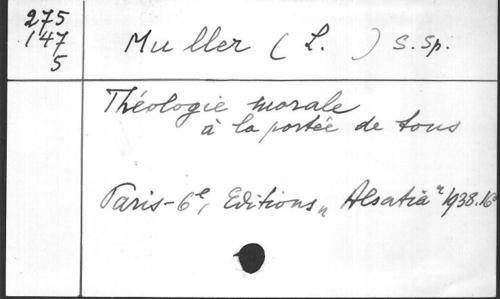 275
147
5
Muller (L. ) S.Sp.
Théologie morale
à la portée de tous
Paris-6e, Editions „Alsatia" 1938.16°